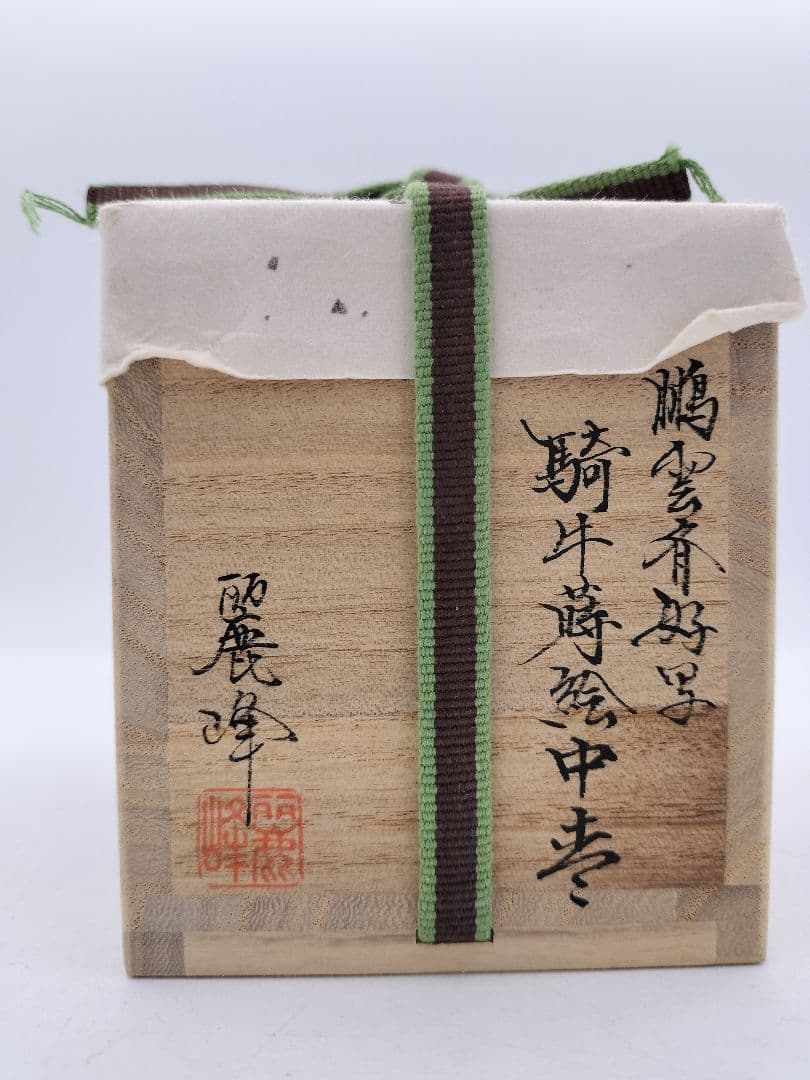 鵬雲斎好写
騎牛蒔絵中棗
麗峰
麗峰